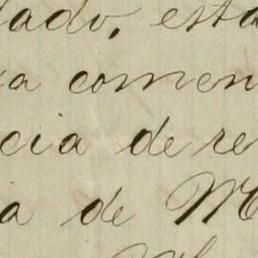 lado, esta
a comen
cia de re
a de M